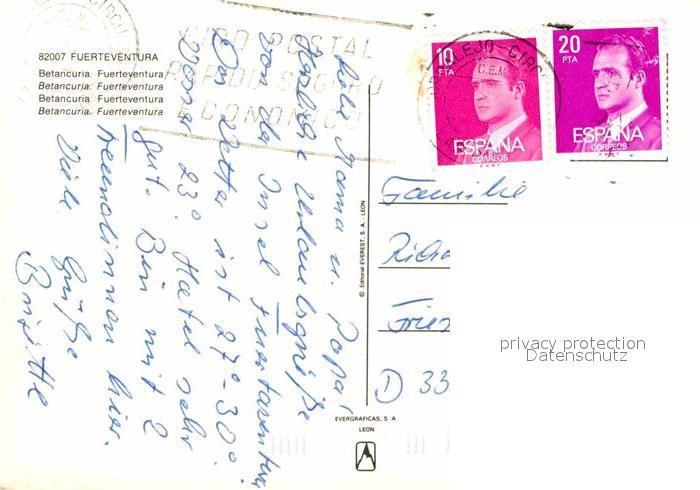 82007 FUERTEVENTURA
Betancuria. Fuerteventura
Betancuria. Fuerteventura
Betancuria. Fuerteventura
Betancuria. Fuerteventura
GIRO POSTAL
RAPIDO SEGURO
ECONOMICO
10
PTA
ESPAÑA
CORREOS
20
PTA
ESPAÑA
CORREOS
Mama u. Papa,
Urlaubsgrüße
von der Insel Fuerteventura.
Das Wetter ist 27°-30°.
23°. Hotel sehr
gut. Bin mit 2
hier.
Viele Grüße
Brigitte
© Editorial EVEREST, S. A. - LEON
Familie
Richa
Fries
D 33
privacy protection
Datenschutz
EVERGRAFICAS, S. A.
LEON